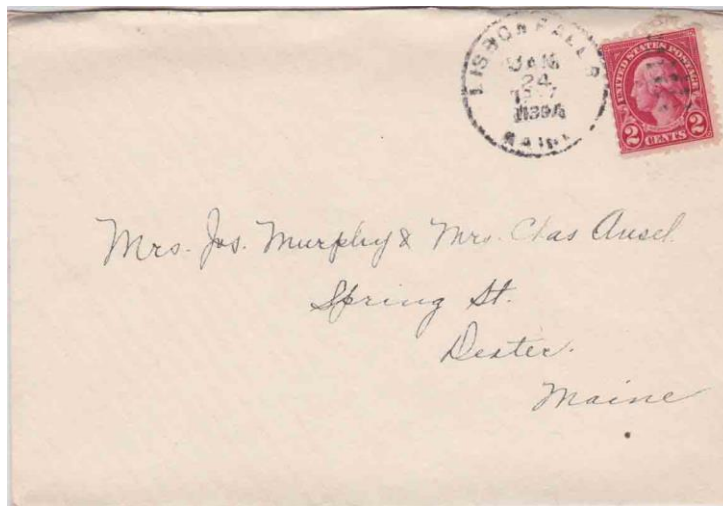 LISBON FALLS
JAN
24
MAINE
UNITED STATES POSTAGE
2 CENTS 2
Mrs. Jos. Murphy & Mrs. Chas Ansel.
Spring St.
Dexter.
Maine